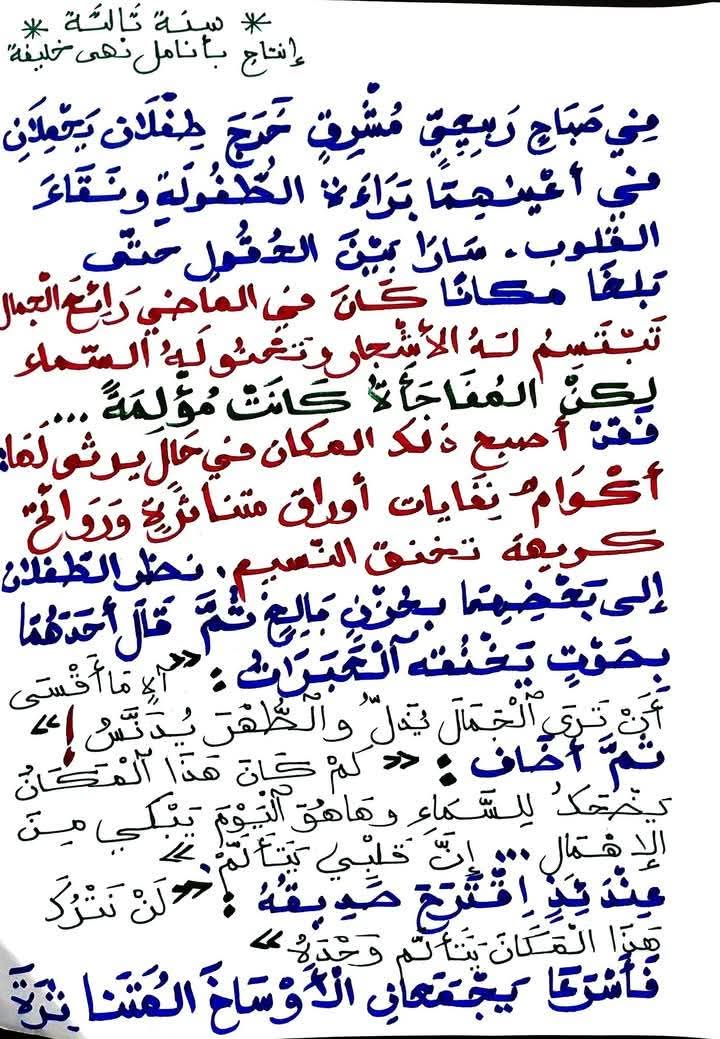 * سنة ثالثة *
إنتاج بأنامل نهى خليفة
فِي صَبَاحٍ رَبِيعِيٍّ مُشْرِقٍ خَرَجَ طِفْلَان يَحْمِلَانِ
في أعْيُنهِمَا بَرَاءَة الطُّفُولَةِ ونَقَاءَ
القلوب. سَارَا بَيْنَ الحُقُولِ حتّى
بَلغَا مكانًا كَانَ في الماضي رَائِعَ الْجمال
تَبْتَسِمُ لهُ الأشْجار وتَحْنُو لَهُ السّماء
لكِنْ المُفَاجَأَة كَانَتْ مُؤْلِمَةً ...
فَقدْ أصبح ذلك المكان في حَالٍ يرثى لَهَا:
أكْوَامُ نِفَايات أوراق متناثِرة وَرَوَائح
كريهة تخنق النّسيم. نظر الطّفلان
إلى بَعْضِهِمَا بحُزْنٍ بَالِغٍ ثُمَّ قَالَ أحَدَهُمَا
بِصَوْتٍ تَخْنُقه الْعَبَرَاتُ : « آلا مَا أَقْسَى
أَنْ تَرَى الْجَمَالَ يُذلّ والطُّهْرَ يُدَنَّسُ ! »
ثمَّ أضاف : « كَمْ كَانَ هَذَا الْمَكَانُ
يَضْحَكُ لِلسَّمَاءِ وهَاهُوَ الْيَوْمَ يَبْكي مِنَ
الإهْمَال ... إنَّ قلبِي يَتَألَّمُ. »
عِنْدَئِذٍ اِقْتَرَحَ صَدِيقهُ : « لَنْ نَتْرُكَ
هَذَا الْمَكَانَ يَتَألّم وَحْدَهُ »
فَأَسْرَعَا يَجْمَعاني الْأَوْسَاخَ المُتَنَا ثِرَةَ